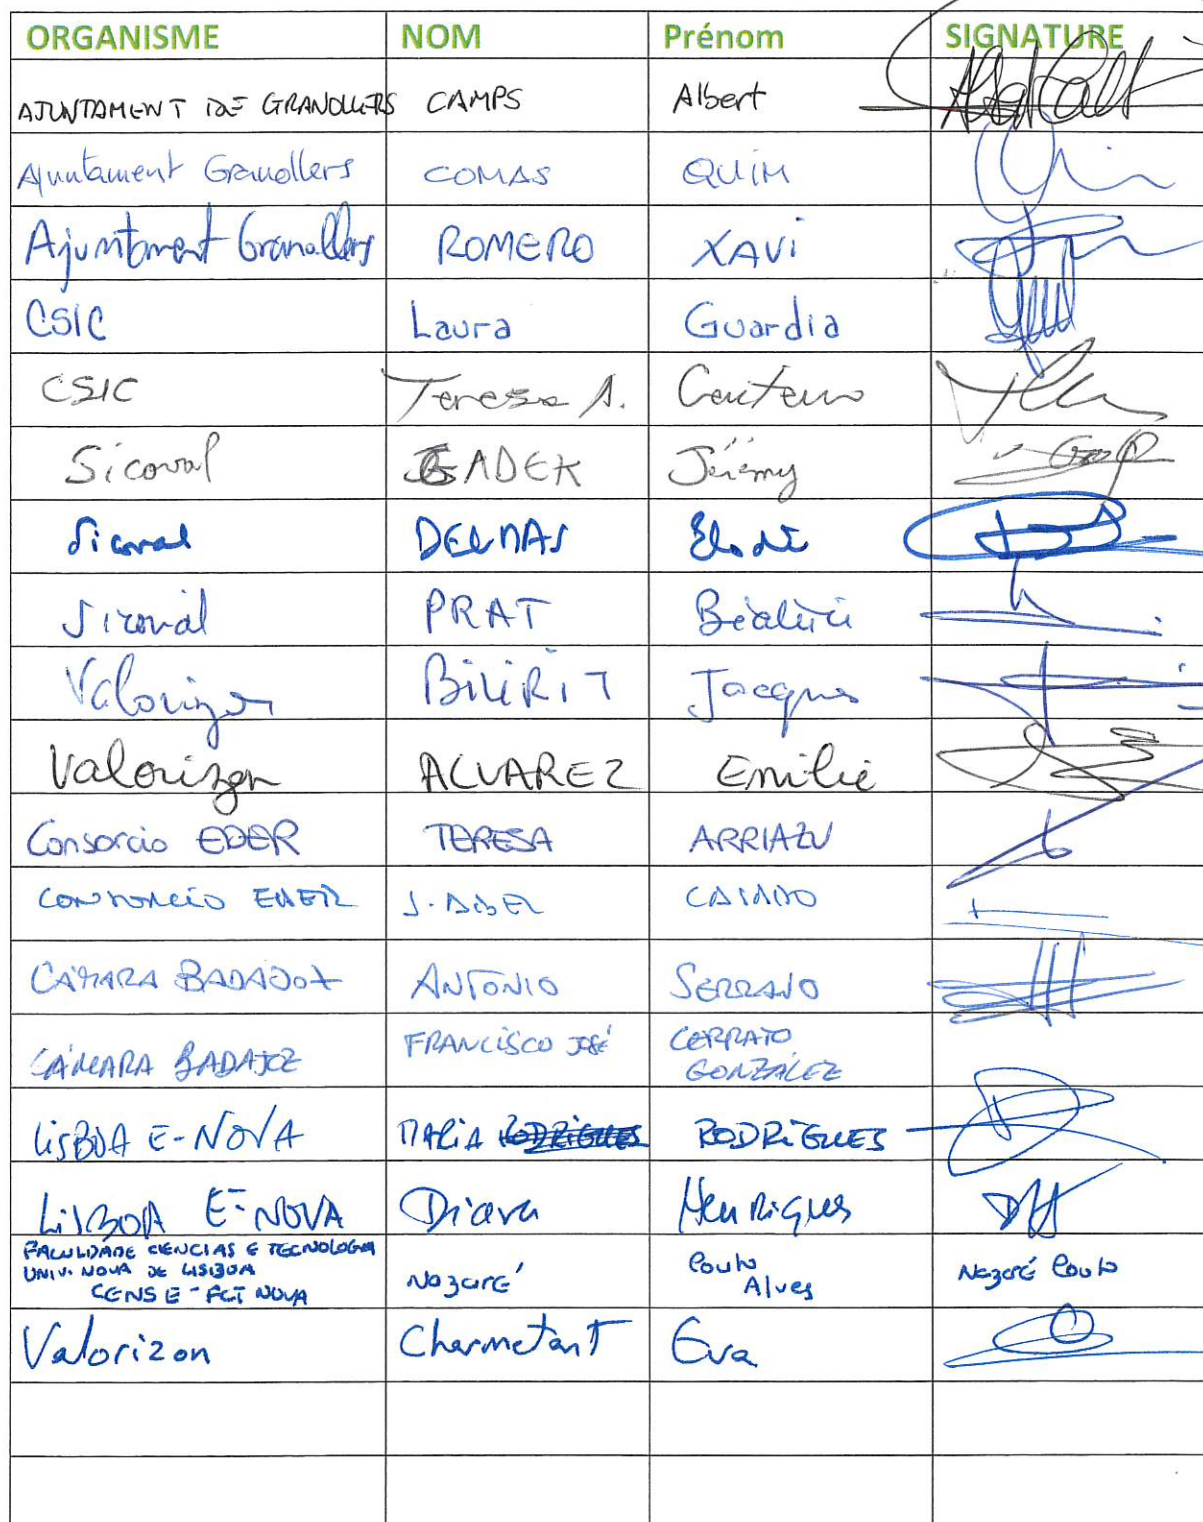 ORGANISME NOM Prénom SIGNATURE
AJUNTAMENT DE GRANOLLERS CAMPS Albert
Ajuntament Granollers COMAS QUIM
Ajuntament Granollers ROMERO XAVI
CSIC Laura Guardia
CSIC Teresa A. Centeno
Sicoval GADEK Jérémy
Sicoval DELMAS Elodie
Sicoval PRAT Béatrice
Valorizon BILIRIT Jacques
Valorizon ALVAREZ Emilie
Consorcio EDER TERESA ARRIAZU
CONSORCIO EDER J. ABEL CASADO
CÁMARA BADAJOZ ANTONIO SERRANO
CÁMARA BADAJOZ FRANCISCO JOSÉ CERRATO
GONZÁLEZ
LISBOA E-NOVA MARIA RODRIGUES RODRIGUES
LISBOA E-NOVA Diana Henriques
FACULDADE CIENCIAS E TECNOLOGIA
UNIV. NOVA DE LISBOA
CENSE-FCT NOVA Nazaré Couto
Alves Nazaré Couto
Valorizon Charmetant Eva